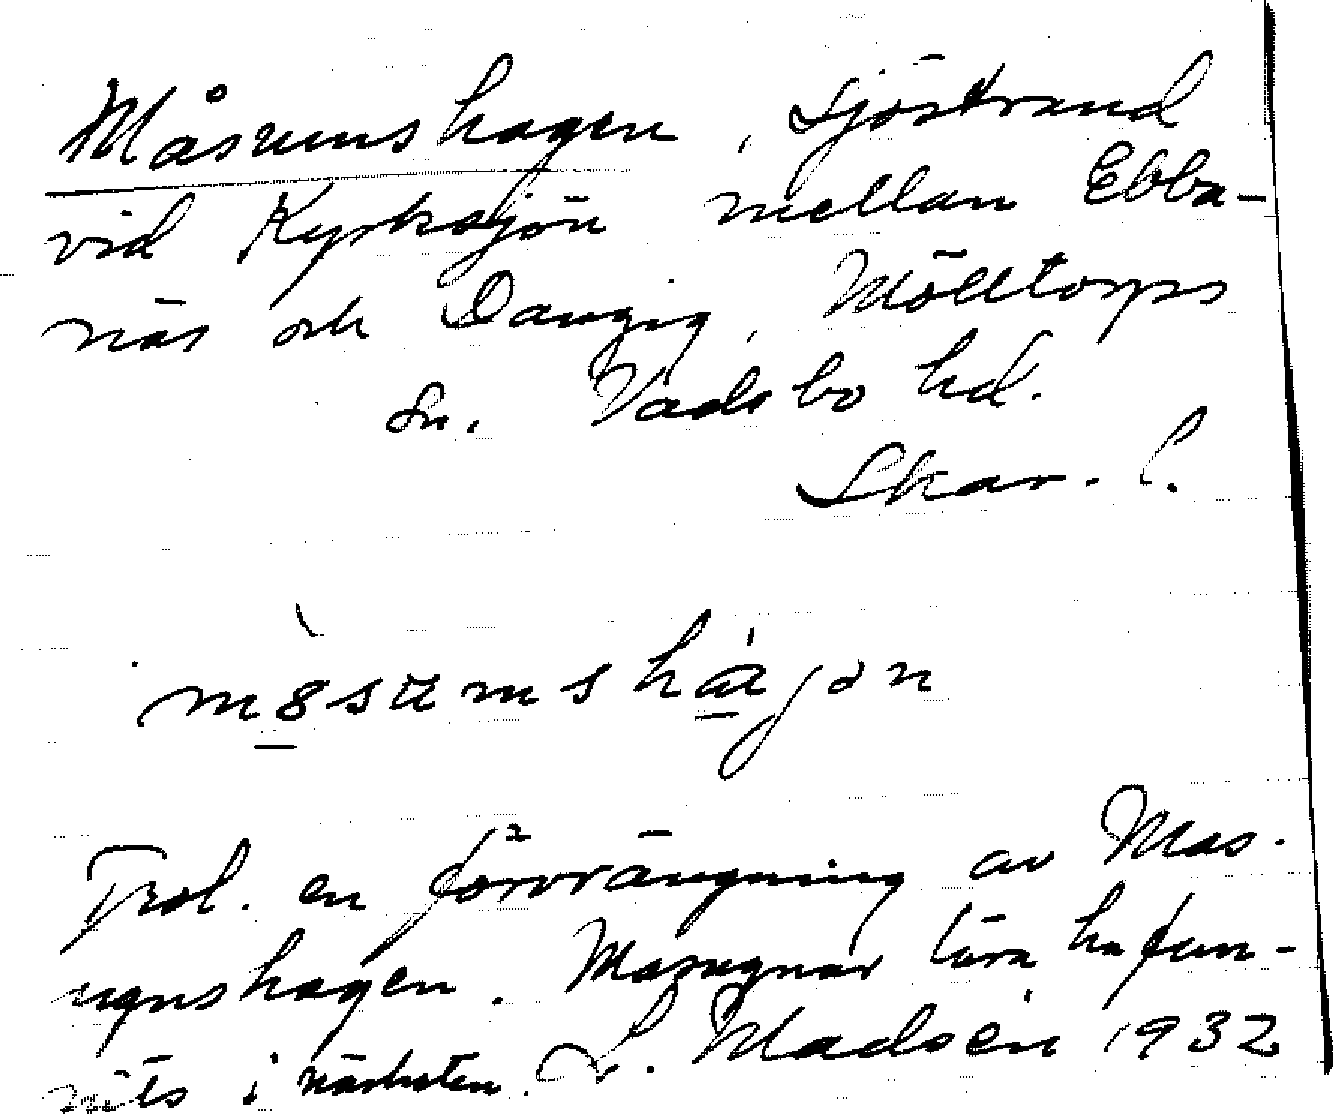 Måsumshagen, Sjöstrand
vid Kyrksjön mellan Ebba-
näs och Danzig, Mölltorps
sn. Vadsbo hd.
Skar. l.
Trol. en förvrängning av Mas-
ugnshagen. Masugnar lära ha fun-
nits i närheten. L. Madsén 1932